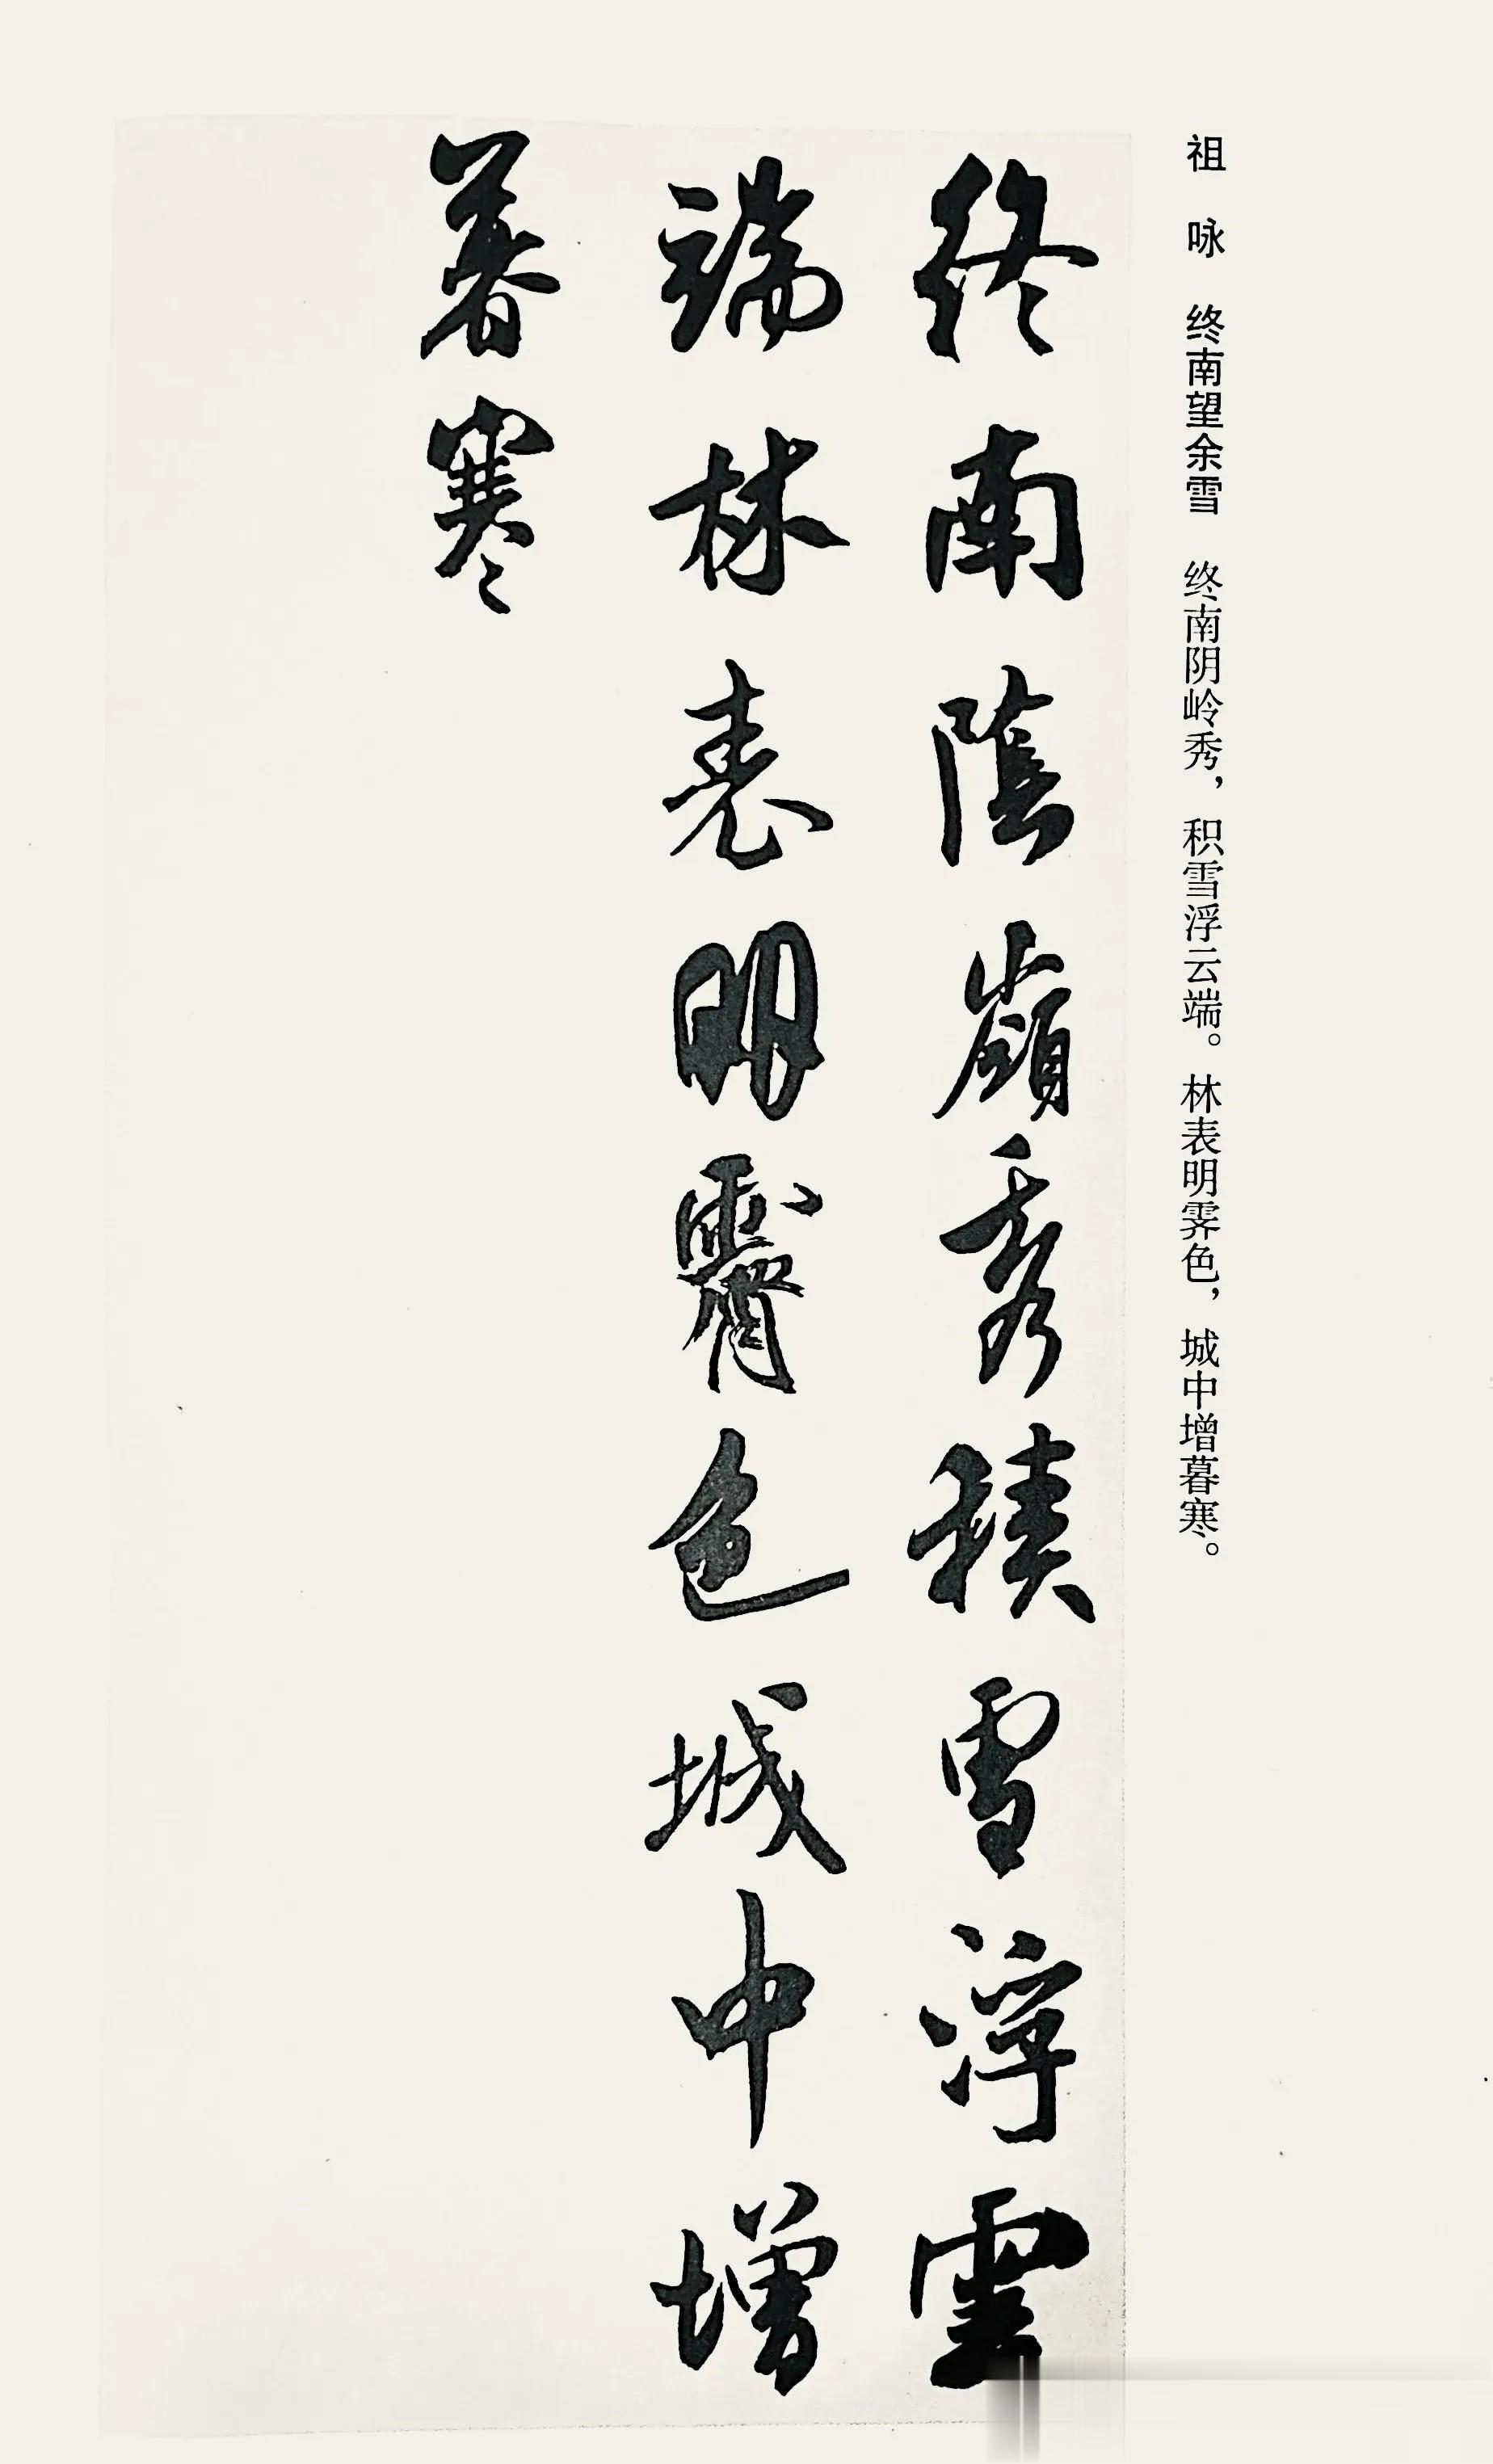 祖咏 终南望余雪 终南阴岭秀，积雪浮云端。林表明霁色，城中增暮寒。
终南陰嶺秀積雪浮雲
端林表明霽色城中增
暮寒